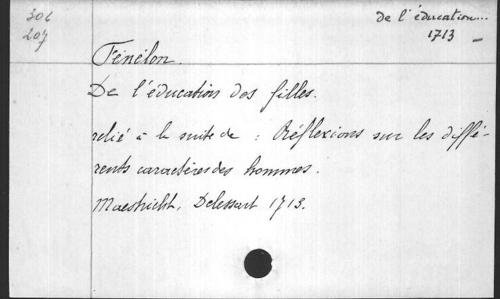 306
207
de l'éducation...
1713 _
Fénélon.
De l'éducation des filles.
relié à la suite de : Réflexions sur les diffé-
rents caractères des hommes.
Maestricht, Delessart 1713.